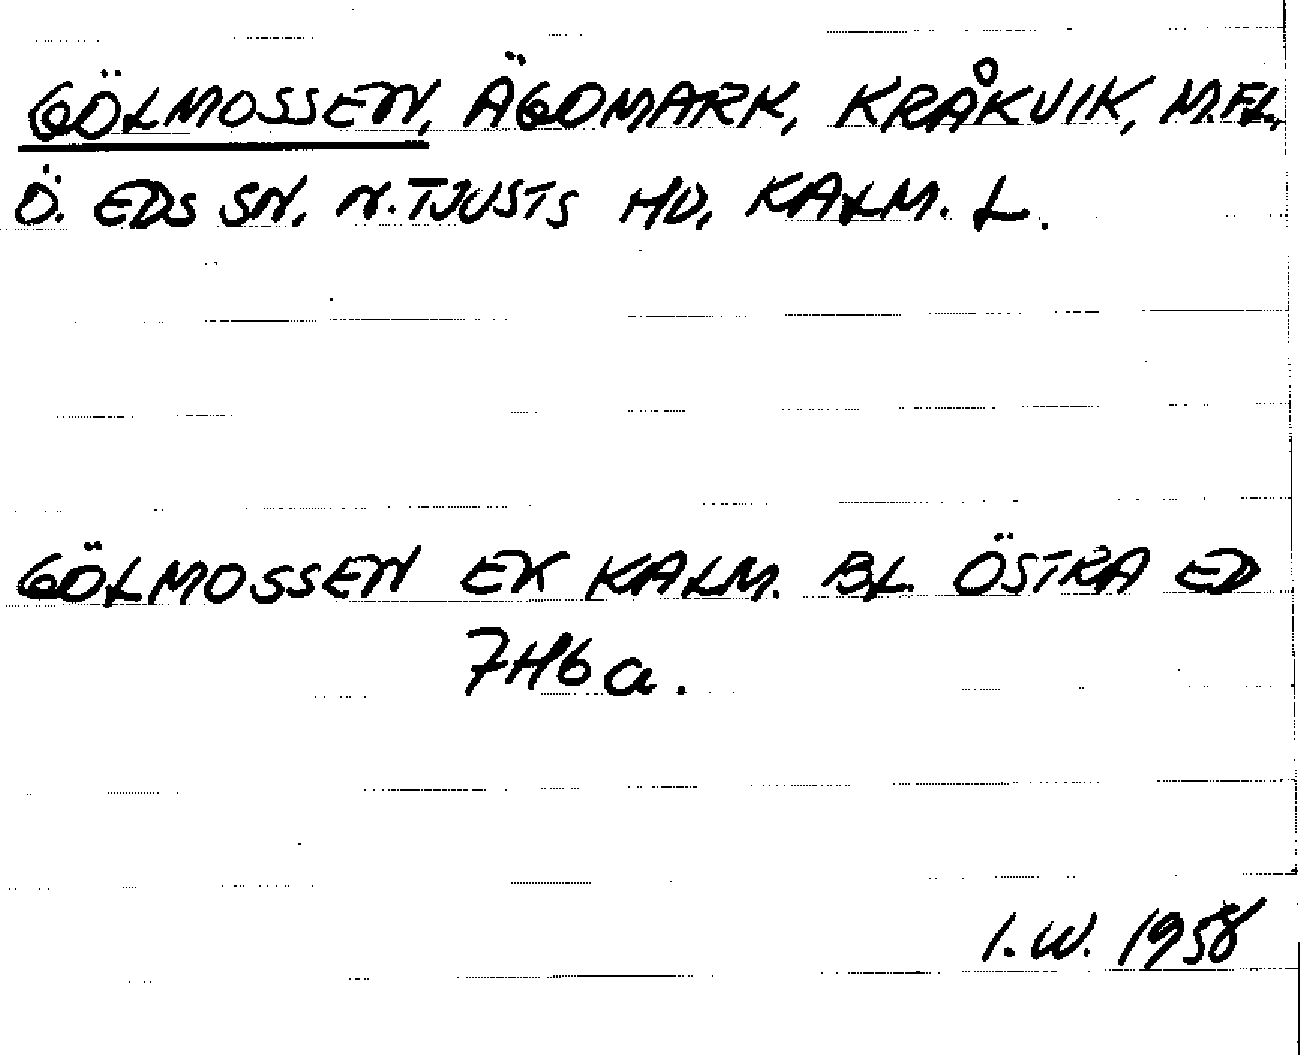 GÖLMOSSEN, ÄGOMARK, KRÅKVIK, M.FL.,
Ö. EDS SN, N. TJUSTS HD, KALM. L.
GÖLMOSSEN EK KALM. BL. ÖSTRA ED
7H6a.
I.W. 1958